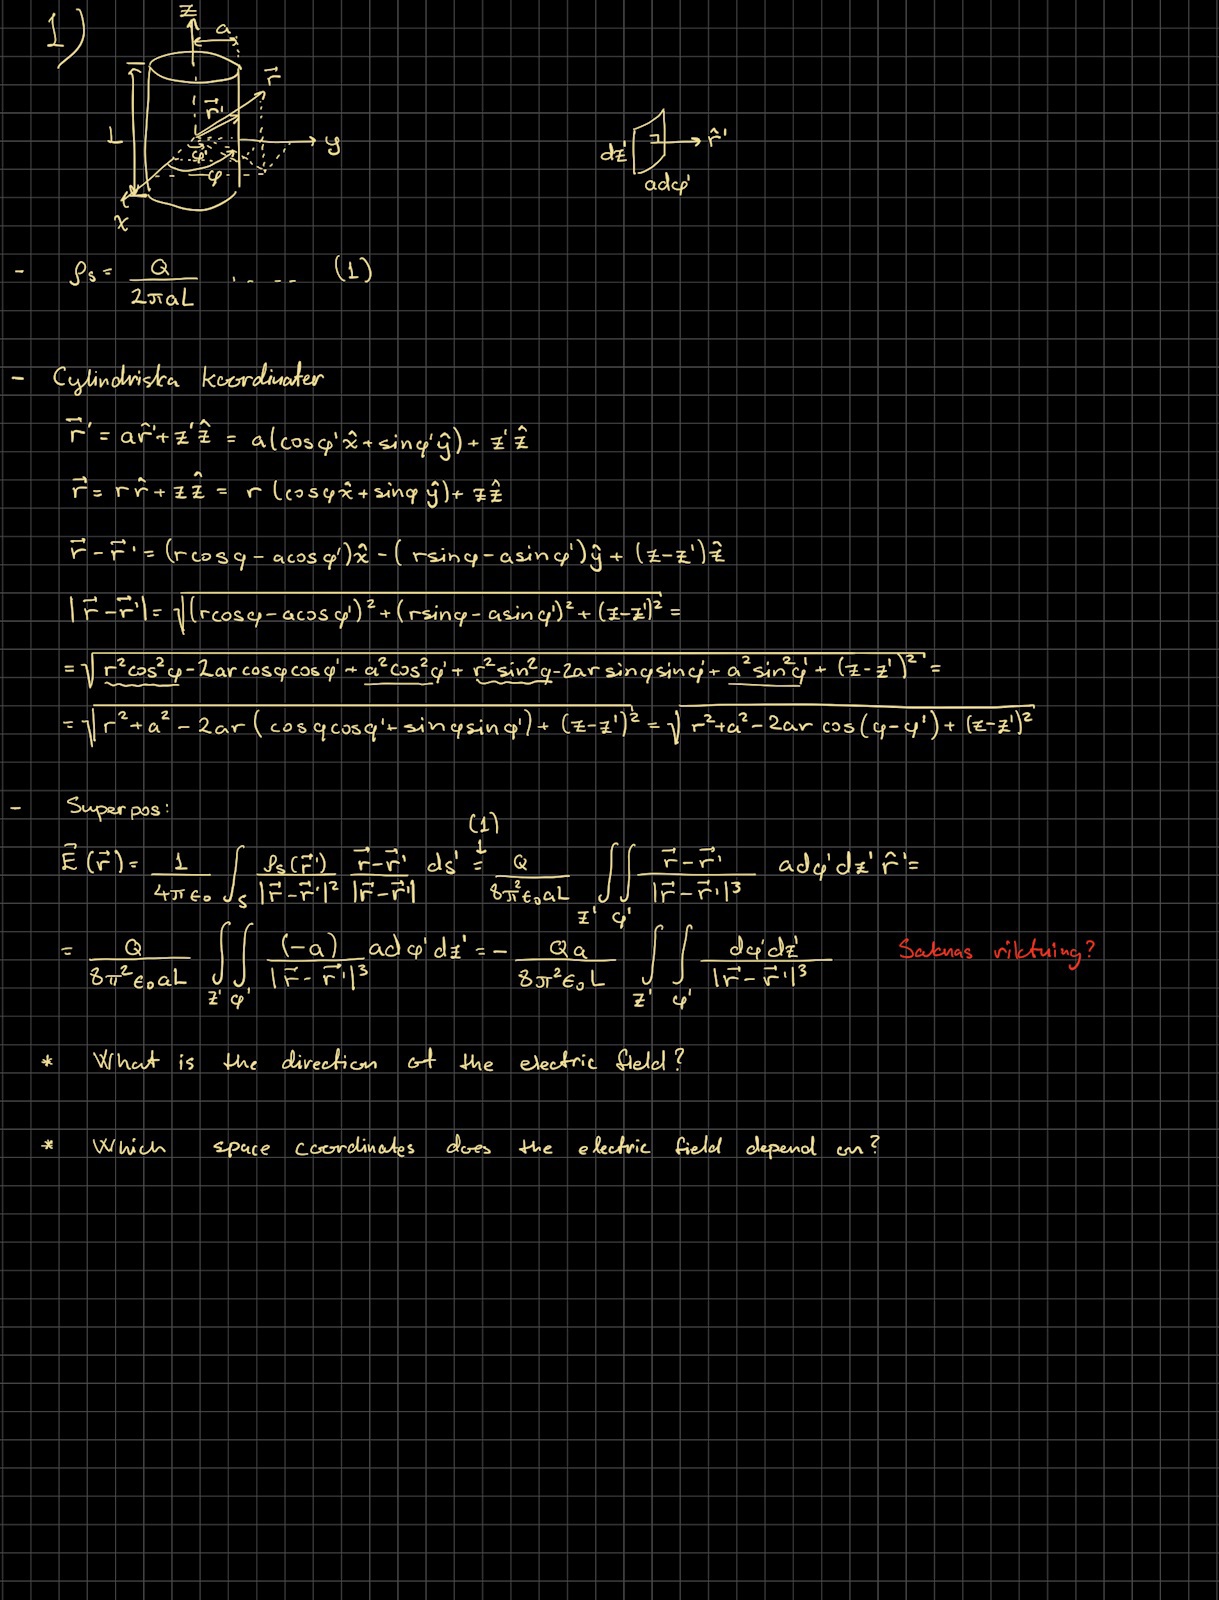 1)
z
a
r⃗
r⃗'
L
y
φ'
φ
x
dz'
r̂'
adφ'
- ρs = Q / 2πaL ..... (1)
- Cylindriska koordinater
r⃗' = ar̂' + z'ẑ = a(cosφ'x̂ + sinφ'ŷ) + z'ẑ
r⃗ = rr̂ + zẑ = r(cosφx̂ + sinφŷ) + zẑ
r⃗ - r⃗' = (rcosφ - acosφ')x̂ - (rsinφ - asinφ')ŷ + (z-z')ẑ
|r⃗ - r⃗'| = √((rcosφ - acosφ')² + (rsinφ - asinφ')² + (z-z')²) =
= √(r²cos²φ - 2arcosφcosφ' + a²cos²φ' + r²sin²φ - 2arsinφsinφ' + a²sin²φ' + (z-z')²) =
= √(r² + a² - 2ar(cosφcosφ' + sinφsinφ') + (z-z')²) = √(r² + a² - 2ar cos(φ-φ') + (z-z')²)
- Superpos:
(1)
E⃗(r⃗) = 1/4πε₀ ∫_S ρs(r⃗')/|r⃗-r⃗'|² r⃗-r⃗'/|r⃗-r⃗'| ds' = Q/8π²ε₀aL ∬_z'φ' r⃗-r⃗'/|r⃗-r⃗'|³ adφ'dz' r̂' =
= Q/8π²ε₀aL ∬_z'φ' (-a)/|r⃗-r⃗'|³ adφ'dz' = - Qa/8π²ε₀L ∫_z' ∫_φ' dφ'dz'/|r⃗-r⃗'|³ Saknas riktning?
* What is the direction of the electric field?
* Which space coordinates does the electric field depend on?